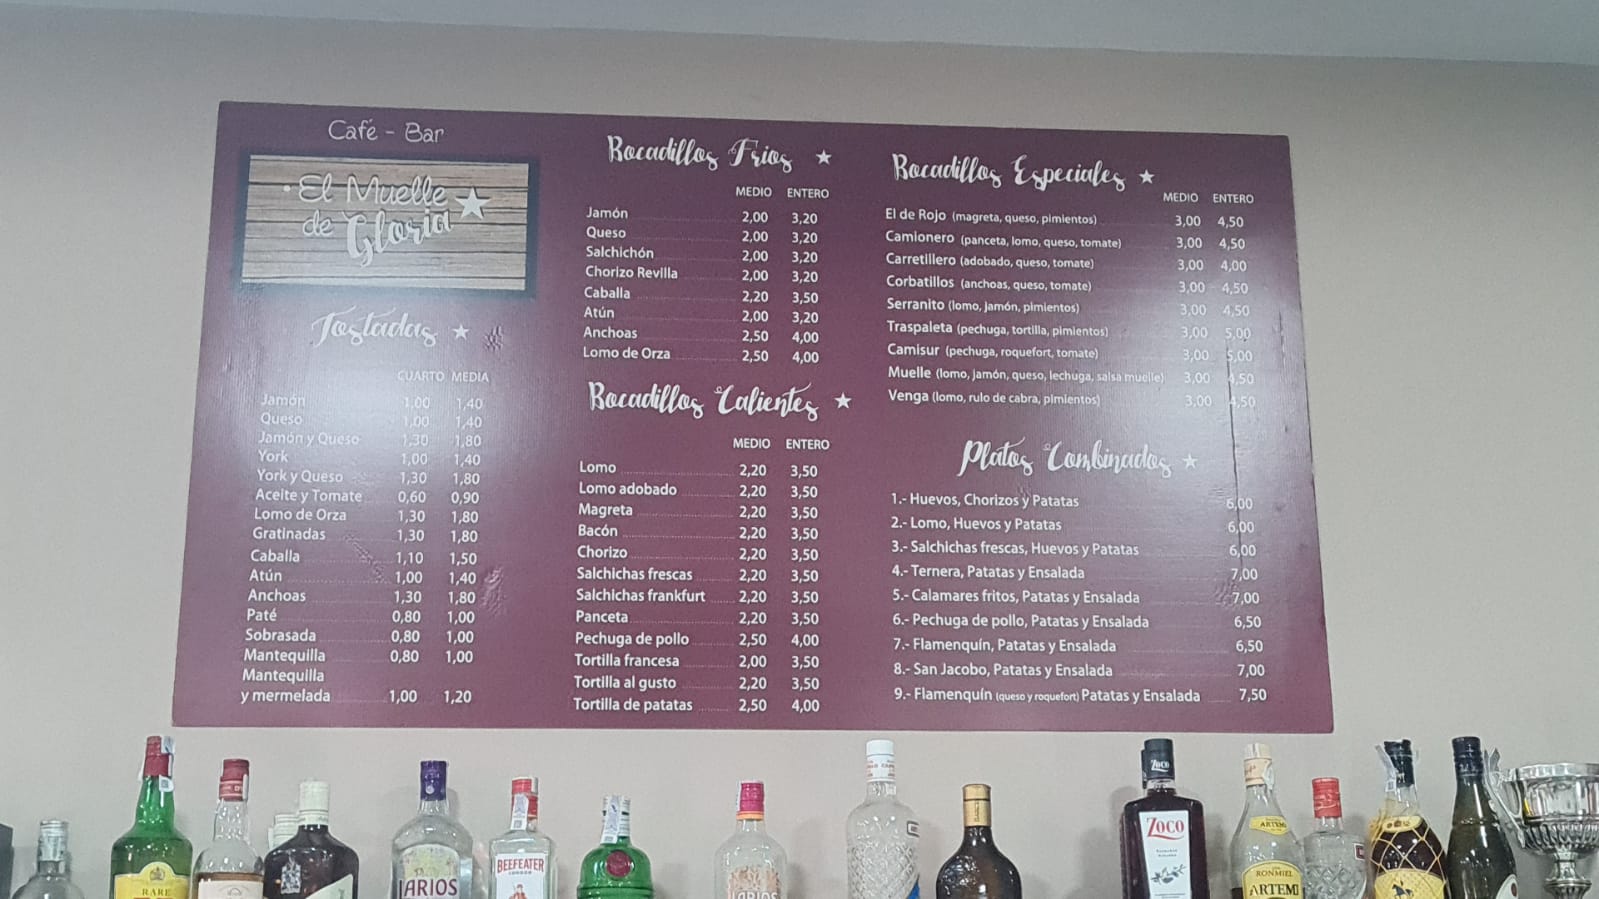 Café - Bar
El Muelle
de Gloria
Tostadas
CUARTO MEDIA
Jamón 1,00 1,40
Queso 1,00 1,40
Jamón y Queso 1,30 1,80
York 1,00 1,40
York y Queso 1,30 1,80
Aceite y Tomate 0,60 0,90
Lomo de Orza 1,30 1,80
Gratinadas 1,30 1,80
Caballa 1,10 1,50
Atún 1,00 1,40
Anchoas 1,30 1,80
Paté 0,80 1,00
Sobrasada 0,80 1,00
Mantequilla 0,80 1,00
Mantequilla
y mermelada 1,00 1,20
Bocadillos Frios
MEDIO ENTERO
Jamón 2,00 3,20
Queso 2,00 3,20
Salchichón 2,00 3,20
Chorizo Revilla 2,00 3,20
Caballa 2,20 3,50
Atún 2,00 3,20
Anchoas 2,50 4,00
Lomo de Orza 2,50 4,00
Bocadillos Calientes
MEDIO ENTERO
Lomo 2,20 3,50
Lomo adobado 2,20 3,50
Magreta 2,20 3,50
Bacón 2,20 3,50
Chorizo 2,20 3,50
Salchichas frescas 2,20 3,50
Salchichas frankfurt 2,20 3,50
Panceta 2,20 3,50
Pechuga de pollo 2,50 4,00
Tortilla francesa 2,00 3,50
Tortilla al gusto 2,20 3,50
Tortilla de patatas 2,50 4,00
Bocadillos Especiales
MEDIO ENTERO
El de Rojo (magreta, queso, pimientos) 3,00 4,50
Camionero (panceta, lomo, queso, tomate) 3,00 4,50
Carretillero (adobado, queso, tomate) 3,00 4,00
Corbatillos (anchoas, queso, tomate) 3,00 4,50
Serranito (lomo, jamón, pimientos) 3,00 4,50
Traspaleta (pechuga, tortilla, pimientos) 3,00 5,00
Camisur (pechuga, roquefort, tomate) 3,00 5,00
Muelle (lomo, jamón, queso, lechuga, salsa muelle) 3,00 4,50
Venga (lomo, rulo de cabra, pimientos) 3,00 4,50
Platos Combinados
1.- Huevos, Chorizos y Patatas 6,00
2.- Lomo, Huevos y Patatas 6,00
3.- Salchichas frescas, Huevos y Patatas 6,00
4.- Ternera, Patatas y Ensalada 7,00
5.- Calamares fritos, Patatas y Ensalada 7,00
6.- Pechuga de pollo, Patatas y Ensalada 6,50
7.- Flamenquín, Patatas y Ensalada 6,50
8.- San Jacobo, Patatas y Ensalada 7,00
9.- Flamenquín (queso y roquefort) Patatas y Ensalada 7,50
RARE
LARIOS
BEEFEATER
LONDON
LARIOS
Zoco
ZOCO
ARTEMI
RONMIEL
ARTEMI